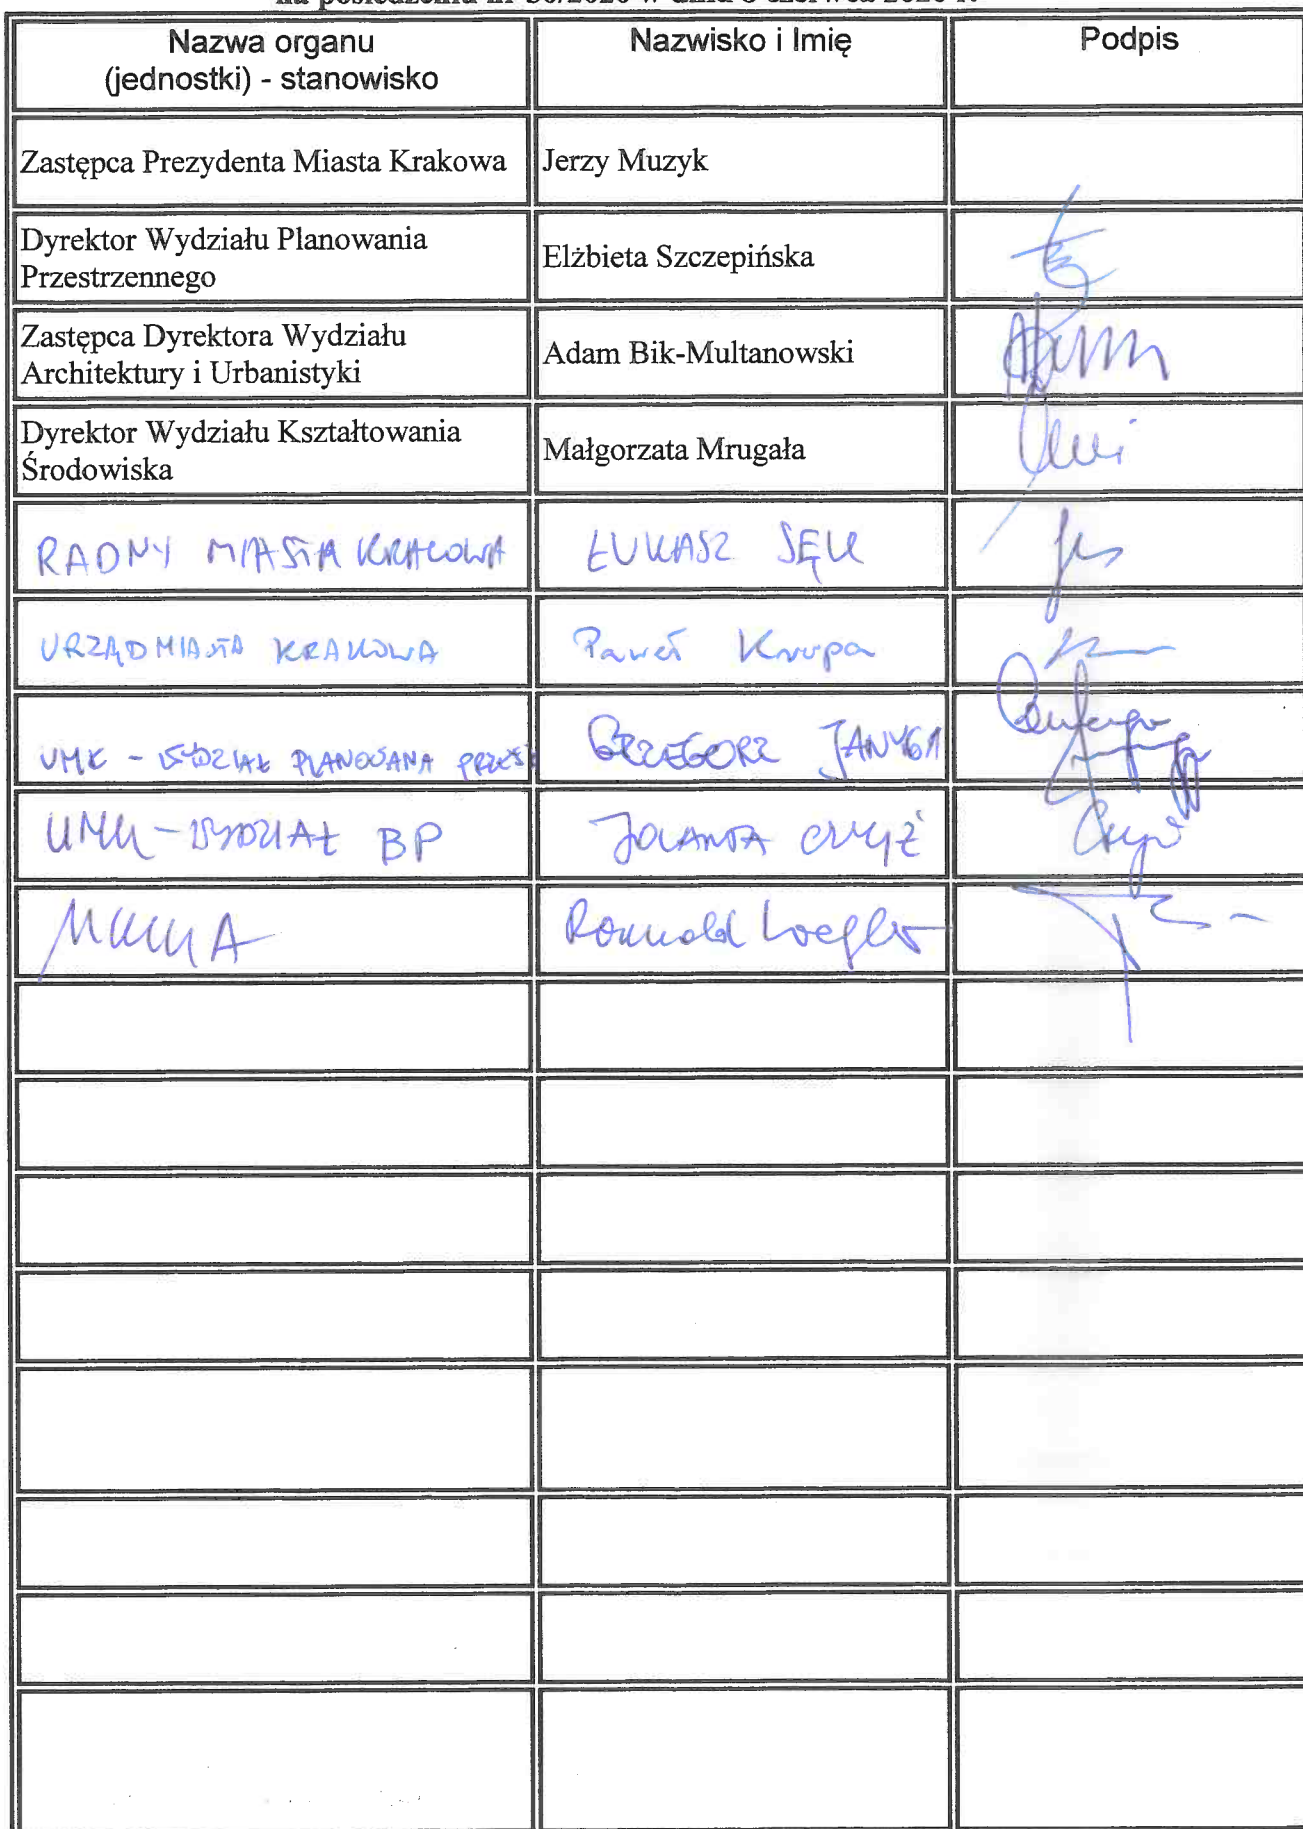 na posiedzeniu nr
Nazwa organu
(jednostki) - stanowisko
Nazwisko i Imię
Podpis
Zastępca Prezydenta Miasta Krakowa
Jerzy Muzyk
Dyrektor Wydziału Planowania
Przestrzennego
Elżbieta Szczepińska
Zastępca Dyrektora Wydziału
Architektury i Urbanistyki
Adam Bik-Multanowski
Dyrektor Wydziału Kształtowania
Środowiska
Małgorzata Mrugała
RADNY MIASTA KRAKOWA
ŁUKASZ SĘK
URZĄD MIASTA KRAKOWA
Paweł Krupa
UMK - WYDZIAŁ
GRZEGORZ JANYGA
UMK - WYDZIAŁ BP
JOLANTA CZYŻ
Romuald Loegler